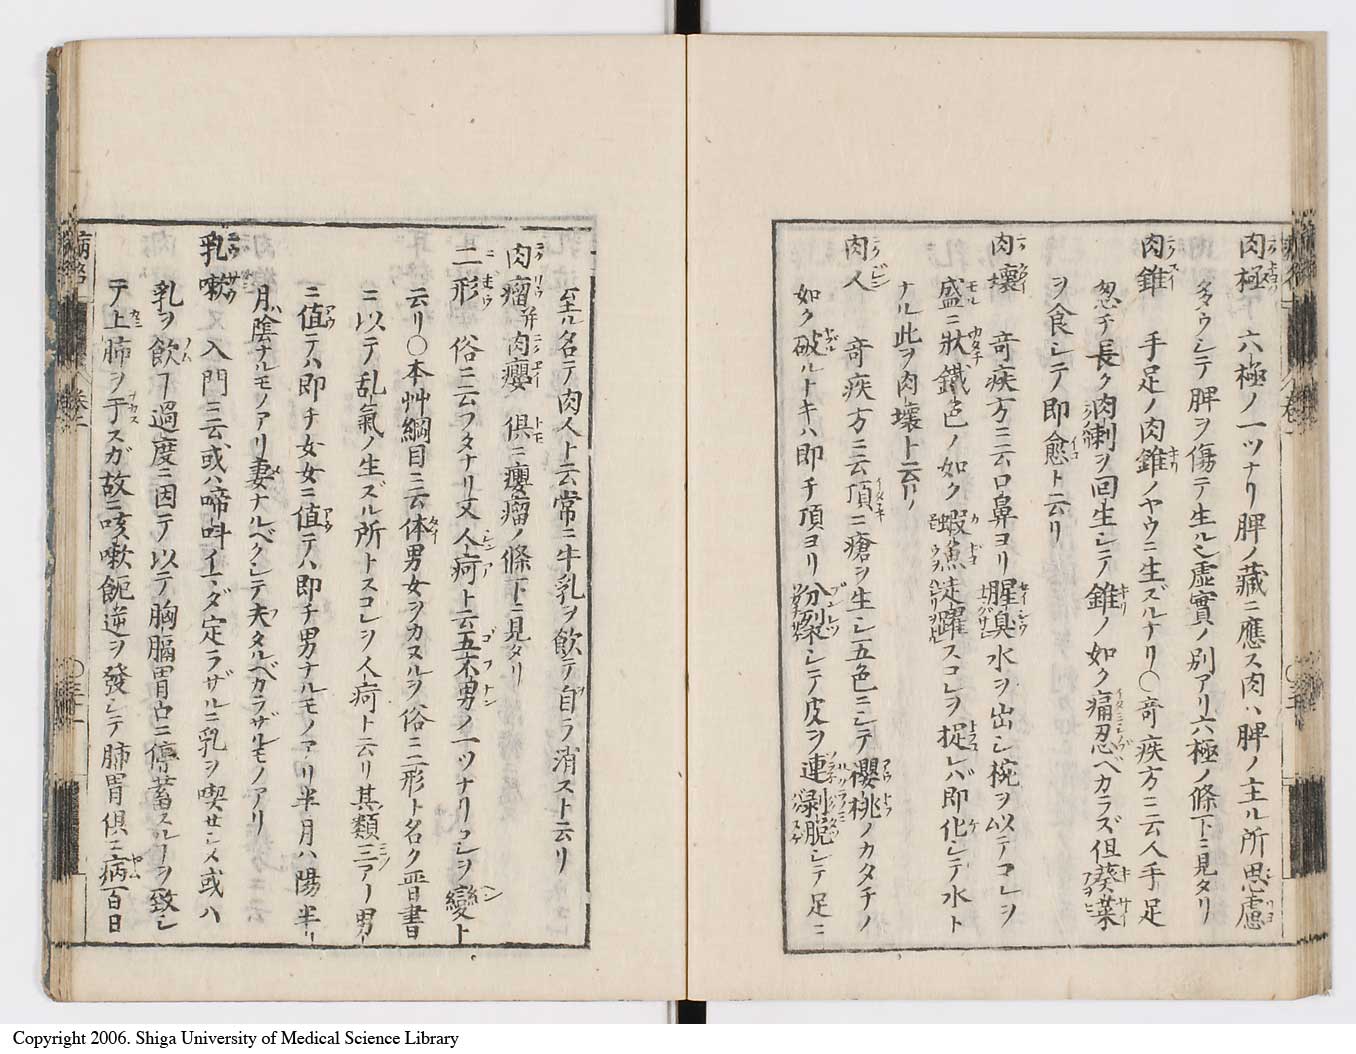 肉極 六極ノ一ツナリ脾ノ藏ニ應ス肉ハ脾ノ主ル所思慮
シテ脾ヲ傷テ生ルン虚實ノ別アリ六極ノ條下ニ見タリ
肉錐 手足ノ肉錐ノヤウニ生ズルナリ〇竒疾方ニ云人手足
忽チ長ク肉刺ヲ回生シテ錐ノ如ク痛忍ベカラズ但葵菜
ヲ食シテ即愈ト云リ
肉壤 竒疾方ニ云口鼻ヨリ腥臭水ヲ出シ椀ヲ以テコレヲ
盛ニ狀鐵色ノ如ク蝦魚走躍スコレヲ捉レバ即化シテ水ト
ナル此ヲ肉壤ト云リ
肉人 竒疾方ニ云頂ニ瘡ヲ生シ五色ニシテ櫻桃ノカタチノ
如ク破ルトキハ即チ頂ヨリ分裂シテ皮ヲ連剥脫シテ足ニ
至ル名テ肉人ト云常ニ牛乳ヲ飲テ自ラ消スト云リ
肉瘤 并肉癭 倶ニ癭瘤ノ條下ニ見タリ
二形 俗ニ云フタナリ又人痾ト云五不男ノ一ツナリコレヲ變ト
云リ〇本艸綱目ニ云体男女ヲカヌルヲ俗ニ二形ト名ク晋書
ニ以テ乱氣ノ生ズル所トスコレヲ人痾ト云リ其類三アリ男
ニ値テハ即チ女女ニ値テハ即チ男ナルモノアリ半月ハ陽半
月ハ陰ナルモノアリ妻ナルベクシテ夫タルベカラザルモノアリ
乳嗽 入門ニ云或ハ啼呌イマダ定ラザルニ乳ヲ喫サシメ或ハ
乳ヲ飲ヿ過度ニ因テ以テ胸膈胃口ニ停蓄スルヿヲ致シ
テ上肺ヲ干スガ故ニ咳嗽䶊逆ヲ發シテ肺胃倶ニ病百日
Copyright 2006. Shiga University of Medical Science Library